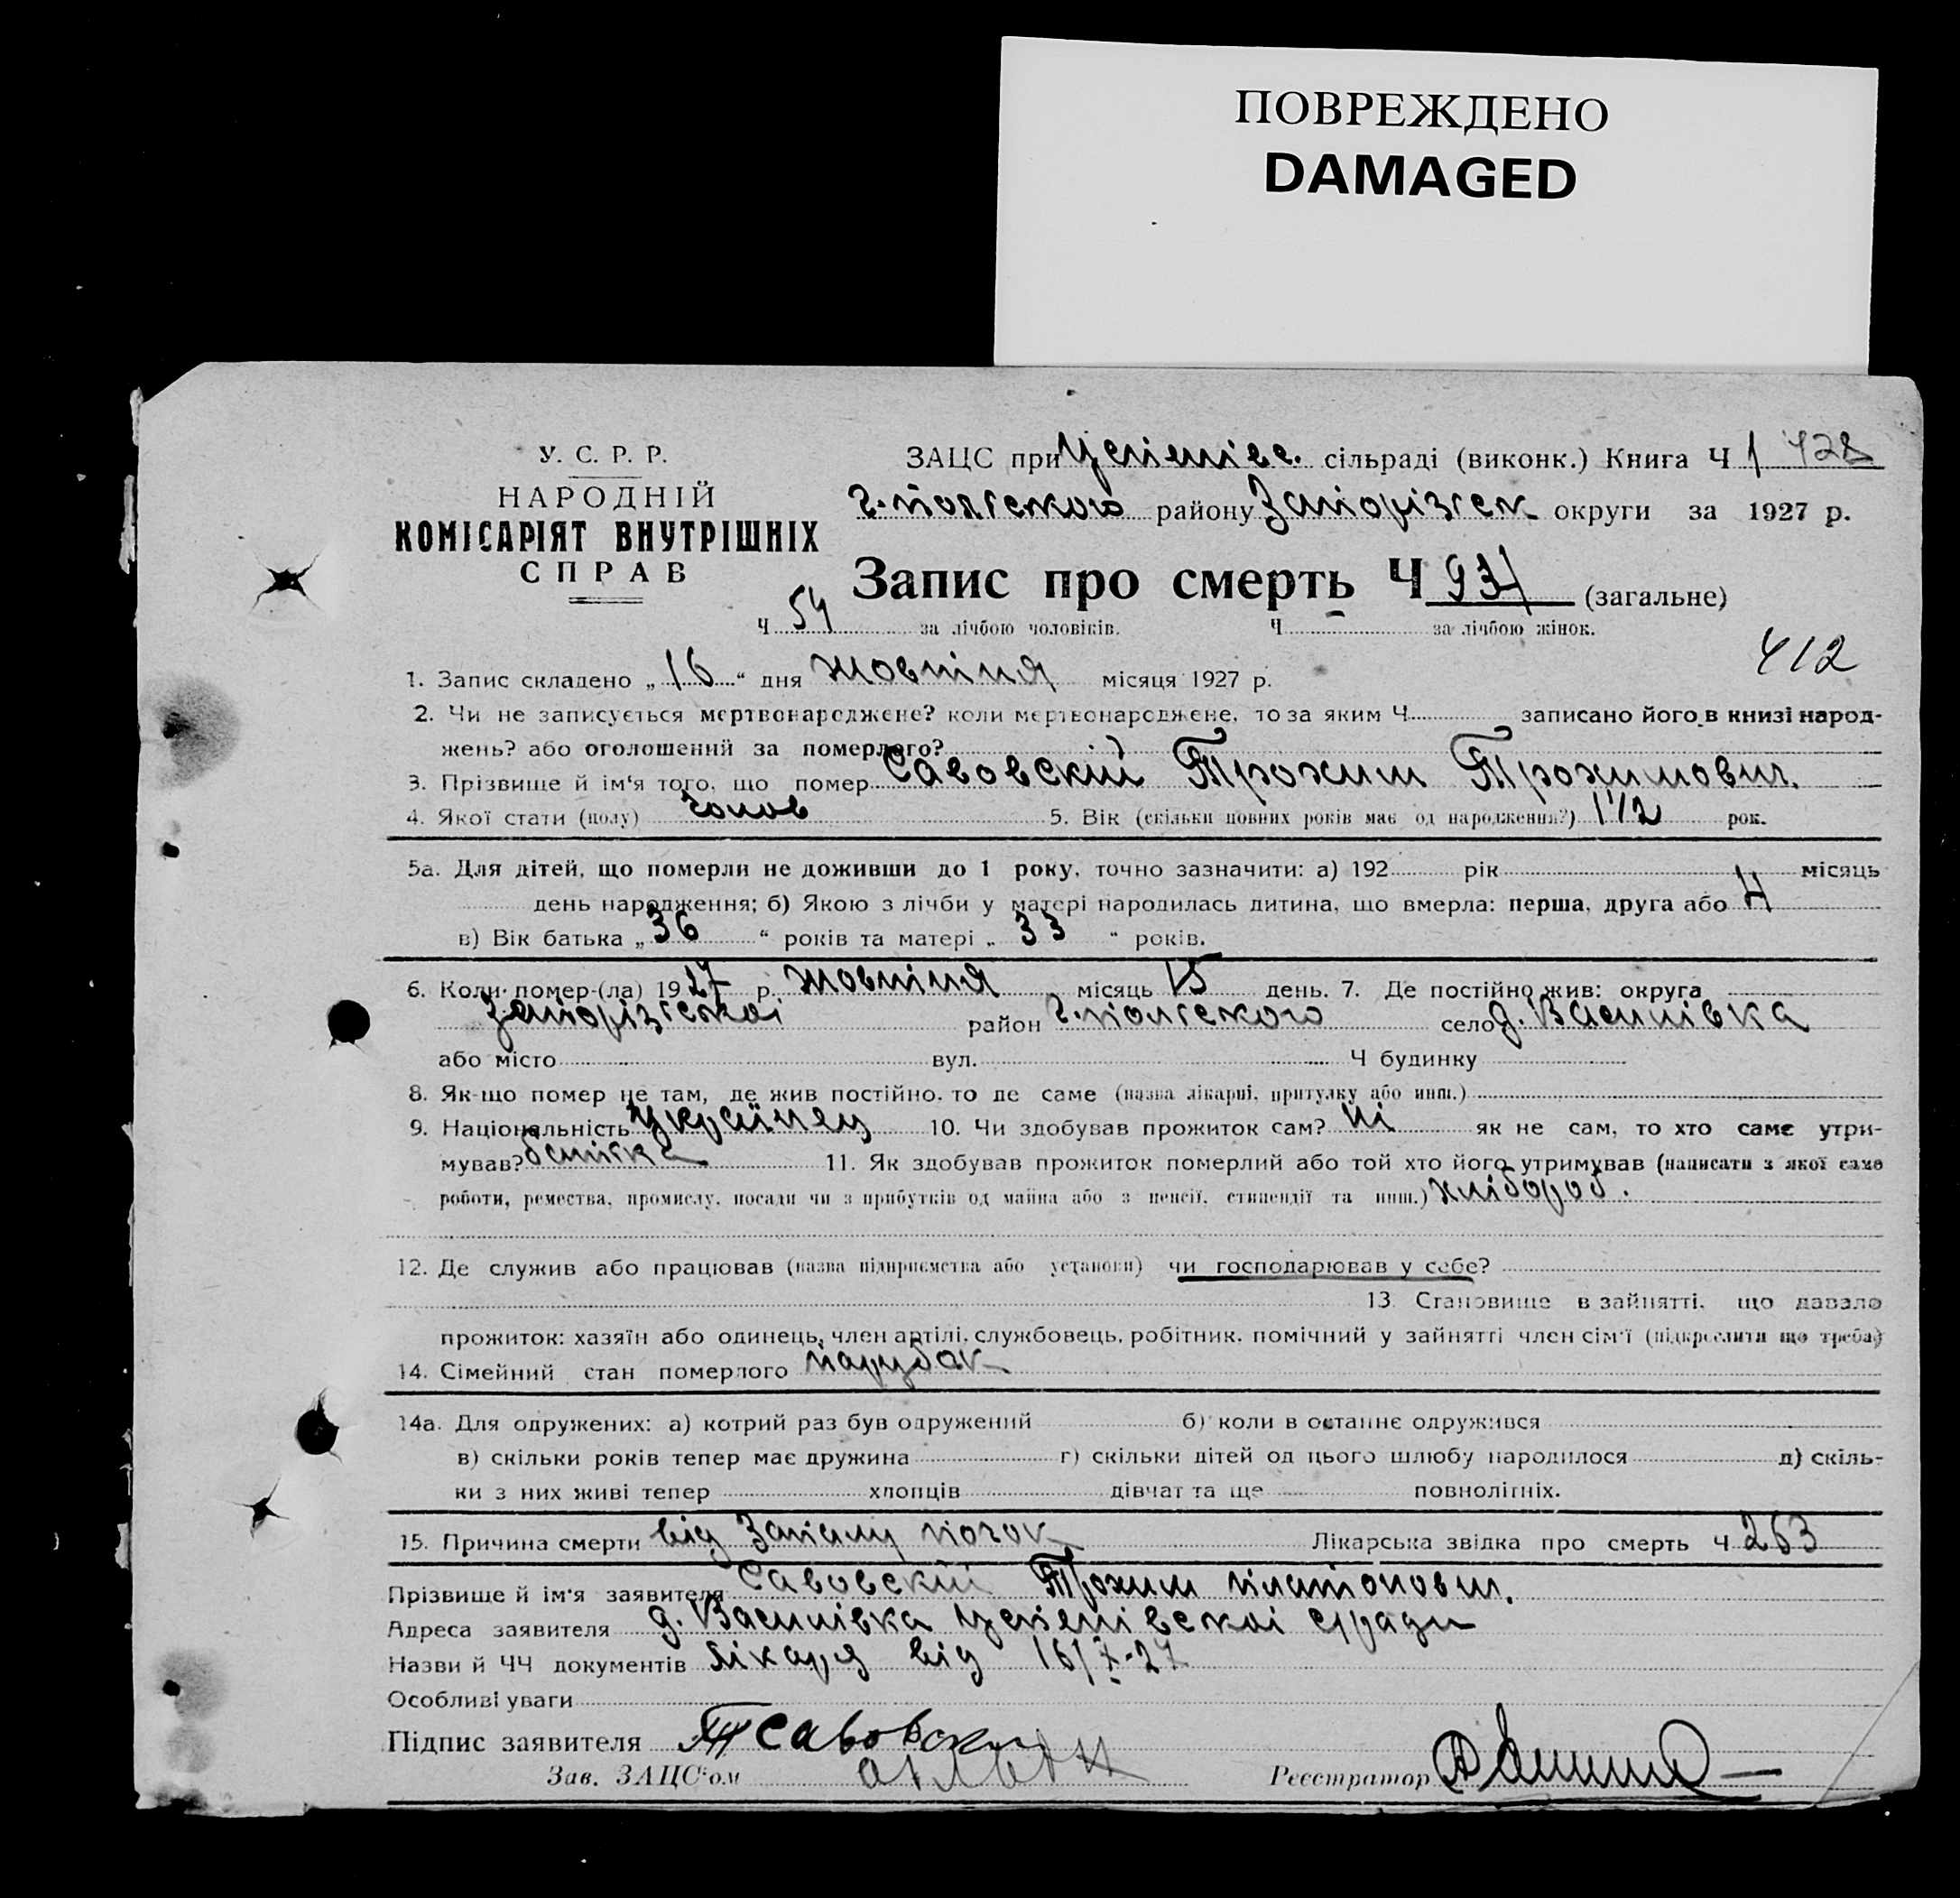 ПОВРЕЖДЕНО
DAMAGED
У. С. Р. Р.
НАРОДНІЙ
КОМІСАРІЯТ ВНУТРІШНІХ
СПРАВ
ЗАЦС при Успенівс. сільраді (виконк.) Книга Ч 1 428
г.-польського району Запорізськ округи за 1927 р.
Запис про смерть Ч 93 (загальне)
Ч 54 за лічбою чоловіків. Ч – за лічбою жінок.
412
1. Запис складено „16“ дня жовтня місяця 1927 р.
2. Чи не записується мертвонароджене? коли мертвонароджене, то за яким Ч записано його в книзі народ-
жень? або оголошений за померлого?
3. Прізвище й ім'я того, що помер Савовскій Трохим Трохимович.
4. Якої стати (полу) чолов 5. Вік (скільки повних років має од народження?) 1 1/2 рок.
5а. Для дітей, що померли не доживши до 1 року, точно зазначити: а) 192 рік місяць
день народження; б) Якою з лічби у матері народилась дитина, що вмерла: перша, друга або 4
в) Вік батька „36“ років та матері „33“ років.
6. Коли помер-(ла) 1927 р. жовтня місяць 15 день. 7. Де постійно жив: округа
Запорізської район г.польського село д. Василівка
або місто вул. Ч будинку
8. Як-що помер не там, де жив постійно, то де саме (назва лікарні, притулку або инш.)
9. Національність українец 10. Чи здобував прожиток сам? ні як не сам, то хто саме утри-
мував? батька 11. Як здобував прожиток померлий або той хто його утримував (написати з якої саме
роботи, ремества, промислу, посади чи з прибутків од майна або з пенсії, стипендії та инш.) хлібороб.
12. Де служив або працював (назва підприємства або установи) чи господарював у себе?
13. Становище в зайнятті, що давало
прожиток: хазяїн або одинець, член артілі, службовець, робітник, помічний у зайнятті член сім'ї (підкреслити що треба)
14. Сімейний стан померлого парубок
14а. Для одружених: а) котрий раз був одружений б) коли в останнє одружився
в) скільки років тепер має дружина г) скільки дітей од цього шлюбу народилося д) скіль-
ки з них живі тепер хлопців дівчат та ще повнолітніх.
15. Причина смерти від Запалу почок Лікарська звідка про смерть Ч 263
Прізвище й ім'я заявителя Савовскій Трохим Платонович.
Адреса заявителя д. Василівка Успенівської с/ради
Назви й ЧЧ документів лікаря від 16/
Особливі уваги
Підпис заявителя Т Савовски
Зав. ЗАЦС'ом
Реєстратор